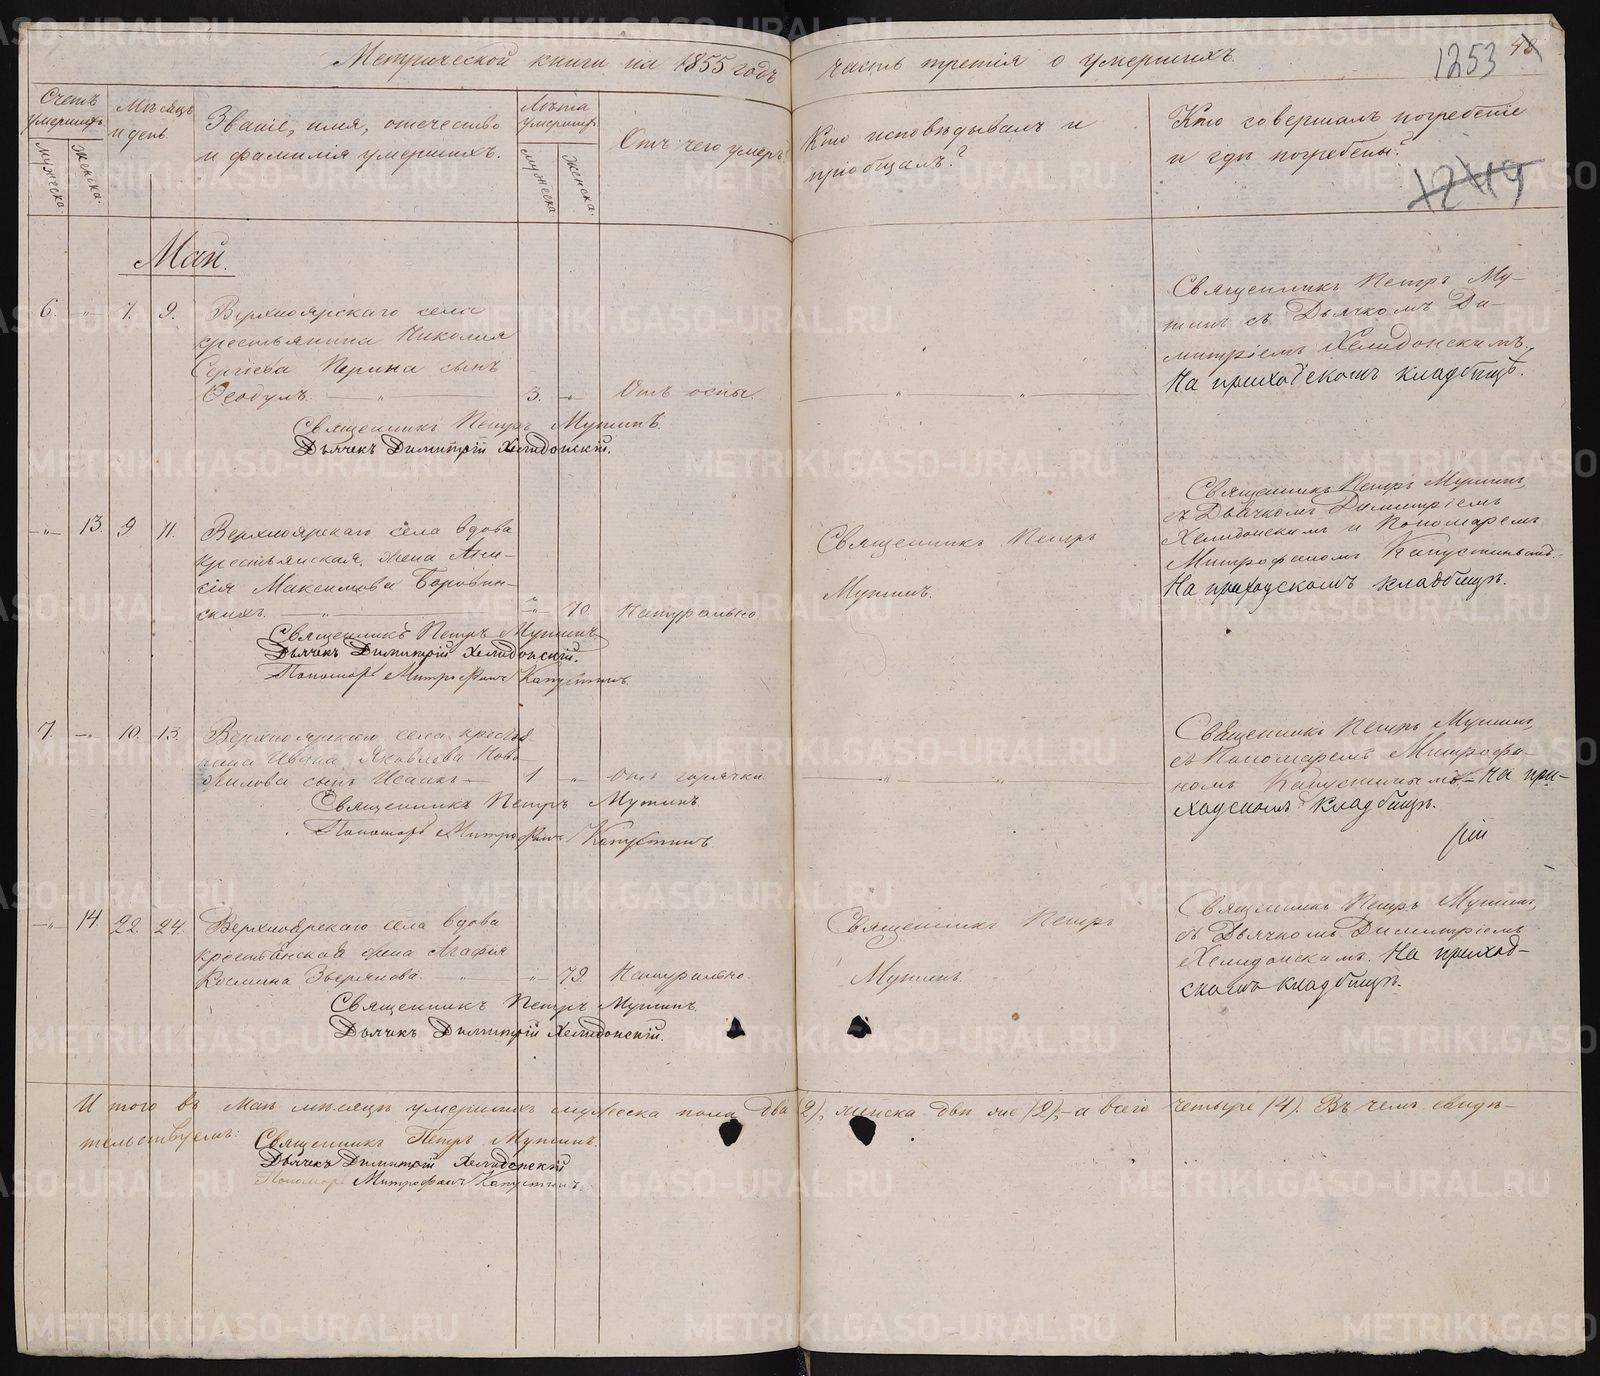 Метрической книги на 1855 годъ часть третія о умершихъ.
1253
Счетъ умершихъ
мужеска
женска.
Мѣсяцъ и день
Званіе, имя, отечество
и фамилія умершихъ.
Лѣта умершихъ
мужеска
женска.
Отъ чего умеръ
Кто исповѣдывалъ и
пріобщалъ?
Кто совершалъ погребеніе
и гдѣ погребены?
Май.
6. -"- 7. 9. Верхноярскаго села
крестьянина Николая
Сергіева Перина сынъ
Ѳеодулъ. 3. -"- Отъ оспы.
Священникъ Петръ Мутинъ.
Дьячекъ Димитрій Хелидонскій.
Священникъ Петръ Му-
тинъ съ Дьячкомъ Ди-
митріемъ Хелидонскимъ.
На приходскомъ кладбищѣ.
-"- 13. 9 11. Верхноярскаго села вдова
крестьянская жена Ани-
сія Максимова Боровин-
скихъ. -"- 70 Натурально.
Священникъ Петръ Мутинъ
Дьячекъ Димитрій Хелидонскій.
Пономарь Митрофанъ Капустинъ.
Священникъ Петръ
Мутинъ.
Священникъ Петръ Мутинъ,
съ Дьячкомъ Димитріемъ
Хелидонскимъ и Пономаремъ
Митрофаномъ Капустинымъ.
На приходскомъ кладбищѣ.
7. -"- 10. 13. Верхноярскаго села крестья
нина Ивана Яковлева Ново
сынъ Исаакъ 1 -"- Отъ горячки
Священникъ Петръ Мутинъ
Пономарь Митрофанъ Капустинъ
Священникъ Петръ Мутинъ,
съ Пономаремъ Митрофа-
номъ Капустинымъ. На при-
ходскомъ кладбищѣ.
-"- 14 22. 24. Верхноярскаго села вдова
крестьянская жена Агафія
Космина Зверянова. -"- 79. Натурально.
Священникъ Петръ Мутинъ.
Дьячекъ Димитрій Хелидонскій.
Священникъ Петръ
Мутинъ.
Священникъ Петръ Мутинъ,
съ Дьячкомъ Димитріемъ
Хелидонскимъ. На приход-
скомъ кладбищѣ.
Итого въ Маѣ мѣсяцѣ умершихъ мужеска пола два (2), женска двѣ (2), а всего четыре (4). Въ чемъ свидѣ-
тельствуемъ: Священникъ Петръ Мутинъ
Дьячекъ Димитрій Хелидонскій
Пономарь Митрофанъ Капустинъ.
METRIKI.GASO-URAL.RU